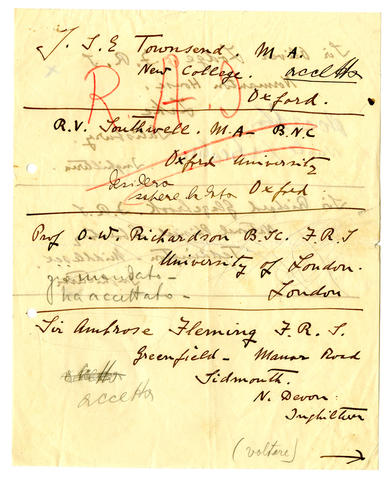 J. S. E Townsend. M. A.
New College. accetta
Oxford.
R. A. S
R.V. Southwell. M.A - B.N.C
Oxford University
desidera
sapere la data Oxford
Prof O. W. Richardson B.Sc. F.R.S
University of London.
già mandato -
ha accettato - London
Sir Ambrose Fleming F.R.S.
Greenfield - Manor Road
accetta Sidmouth.
accetta N. Devon.
Inghilterra
(voltare)